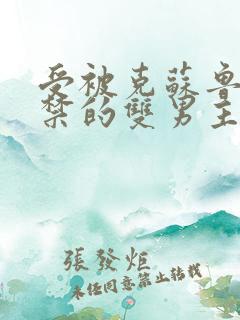 受被克蘇魯
禁的雙男主
張發炬
未經同意禁止轉載